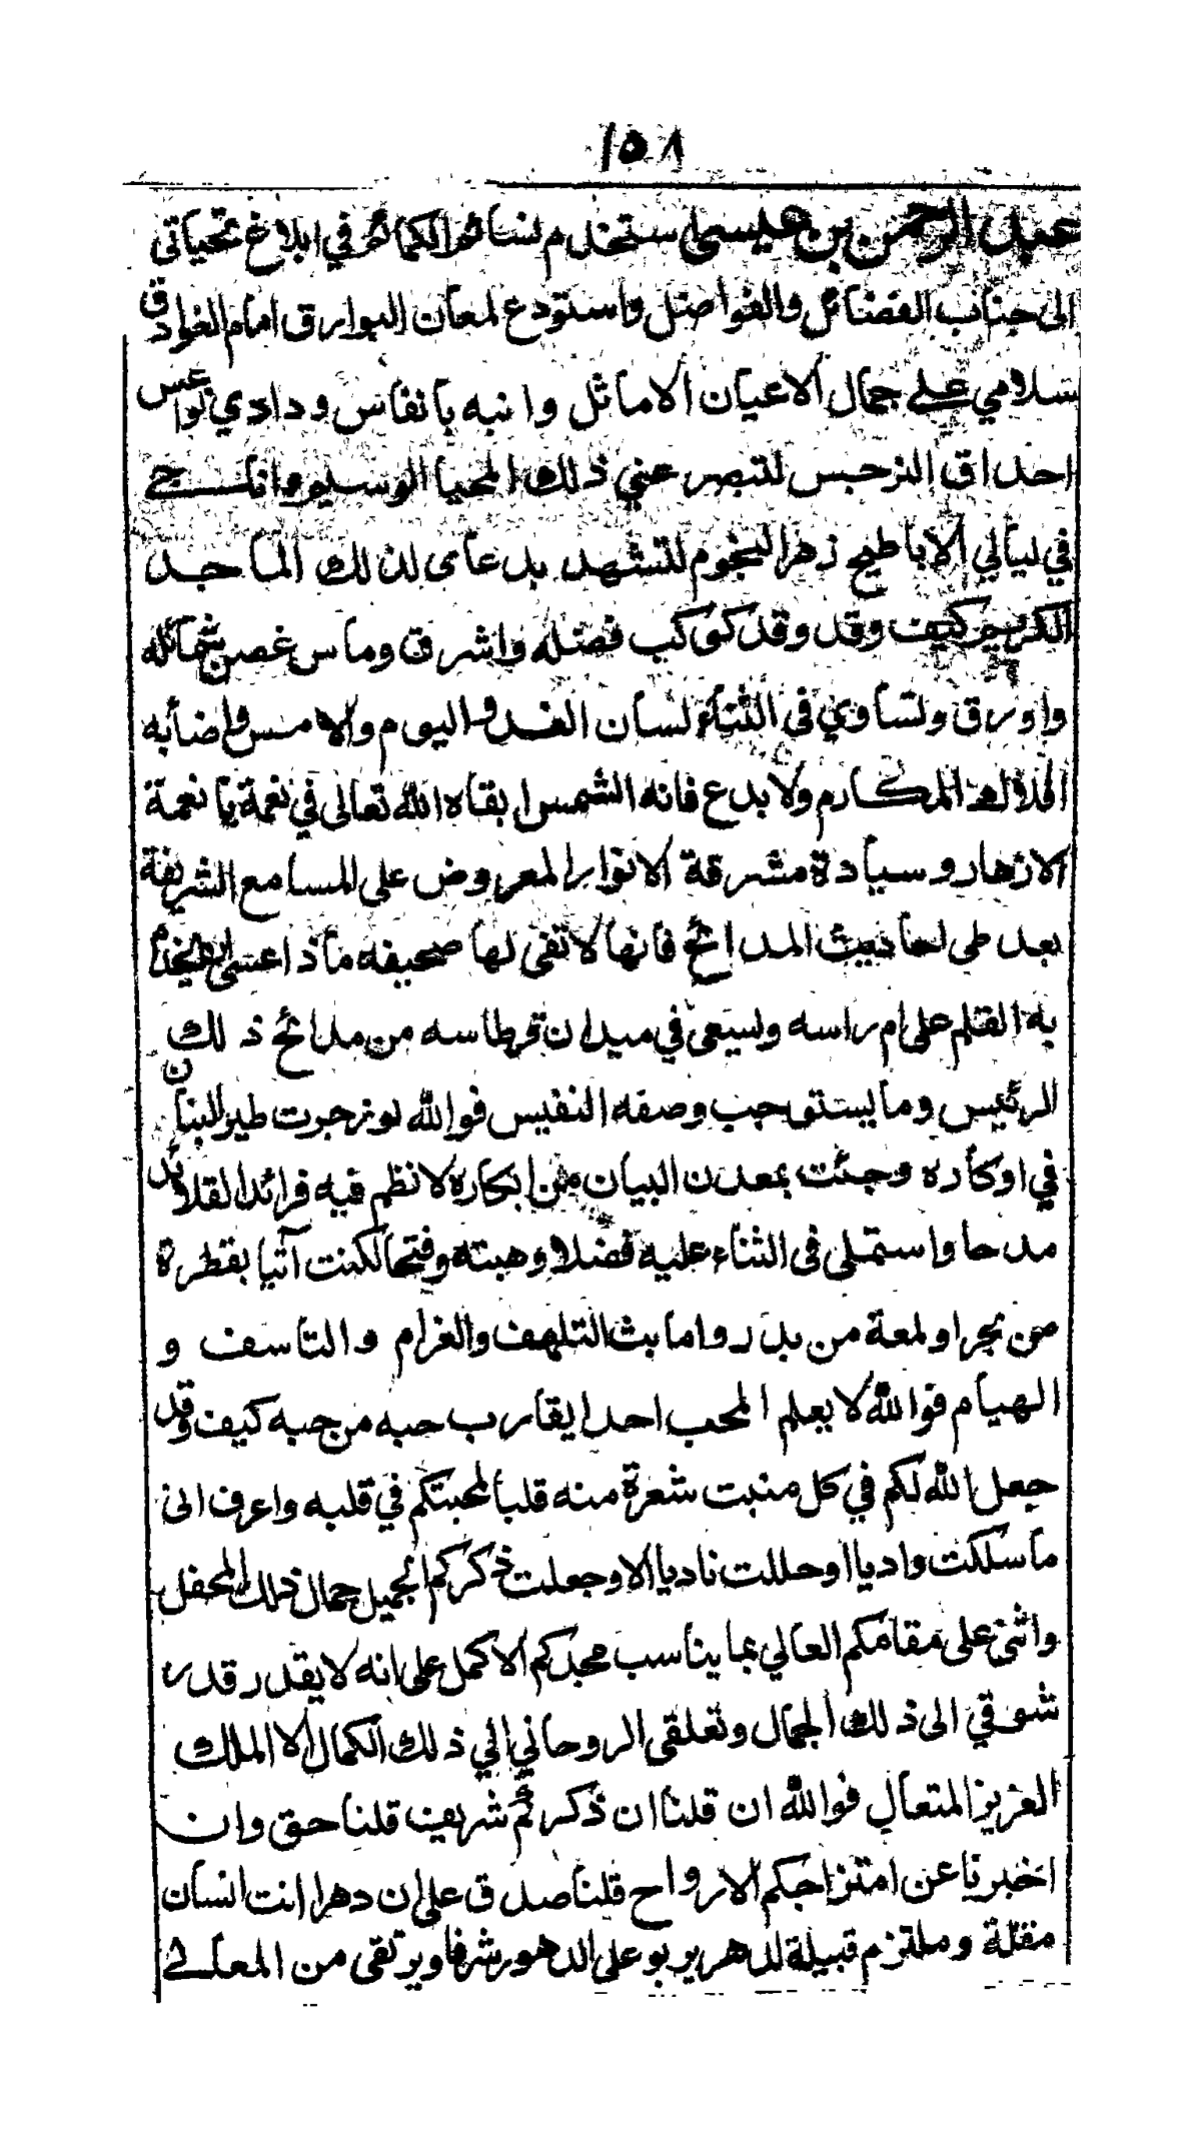 ١٥٨
عبد الرحمن بن عيسى استخدم نسائم الكمائم في ابلاغ تحياتي
الى جناب الفضائل والفواضل واستودع لمعان البوارق امام الغوادق
سلامي على جمال الاعيان الاماثل وانبه بانفاس ودادي نواعس
احداق النرجس لتبصر عني ذلك المحيا الوسيم واناجي
في ليالي الاباطح زهر النجوم لتشهد بدعاى لذلك الماجد
الكريم كيف وقد وقد كوكب فضله واشرق وماس غصن شمائله
واورق وتساوي في الثناء لسان الغد واليوم والامس واضأ به
المكارم ولا بدع فانه الشمس ابقاه الله تعالى في نعمة يانعة
الازهار وسيادة مشرقة الانوار المعروض على المسامع الشريفة
بعد طي احاديث المدائح فانها لا تفى لها صحيفه ماذا عسى ان
به القلم على ام راسه ويسعى في ميدان قرطاسه من مدائح ذلك
الرئيس وما يستوجب وصفه النفيس فوالله لو زجرت طير البنان
في اوكاره وجئت بمعدن البيان من ابكاره لانظم فيه فرائد القلائد
مدحا واستملى فى الثناء عليه فضلا وهبته وفتحا لكنت آتيا بقطرة
من بحر او لمعة من بدر واما بث التلهف والغرام والتاسف و
الهيام فوالله لا يعلم المحب احدا يقارب حبه من حبه كيف وقد
جعل الله لكم في كل منبت شعرة منه قلبا لمحبتكم في قلبه واعرف انى
ما سلكت واديا او حللت ناديا الا وجعلت ذكركم الجميل جمال ذلك المحفل
واثنى على مقامكم العالي بما يناسب مجدكم الاكمل على انه لا يقدر قدر
شوقي الى ذلك الجمال وتعلقى الروحاني الي ذلك الكمال الا الملك
العزيز المتعال فوالله ان قلنا ان ذكركم شريف قلنا حق وان
اخبرنا عن امتزاجكم الارواح قلنا صدق على ان دهرا انت انسان
مقلة وملتزم قبيلة لدهر يربو على الدهور شرفا ويرتقى من المعالي